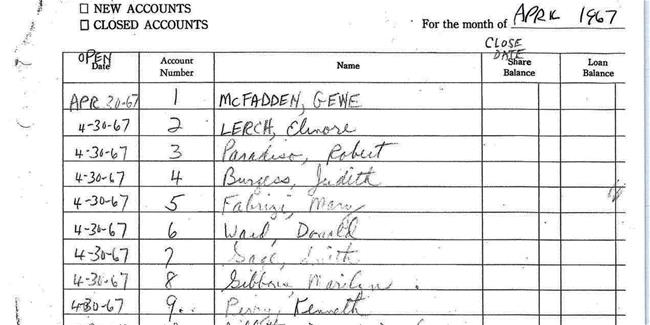 ☐ NEW ACCOUNTS
☐ CLOSED ACCOUNTS
For the month of APRIL 1967
OPEN Date Account Number Name CLOSE DATE Share Balance Loan Balance
APR 30-67 1 McFADDEN, GENE
4-30-67 2 LERCH, Elmore
4-30-67 3 Paradiso, Robert
4-30-67 4 Burgess, Judith
4-30-67 5 Fabrizi, Mary
4-30-67 6 Ward, Donald
4-30-67 7
4-30-67 8 Gibbons, Marilyn
4-30-67 9 Perry, Kenneth